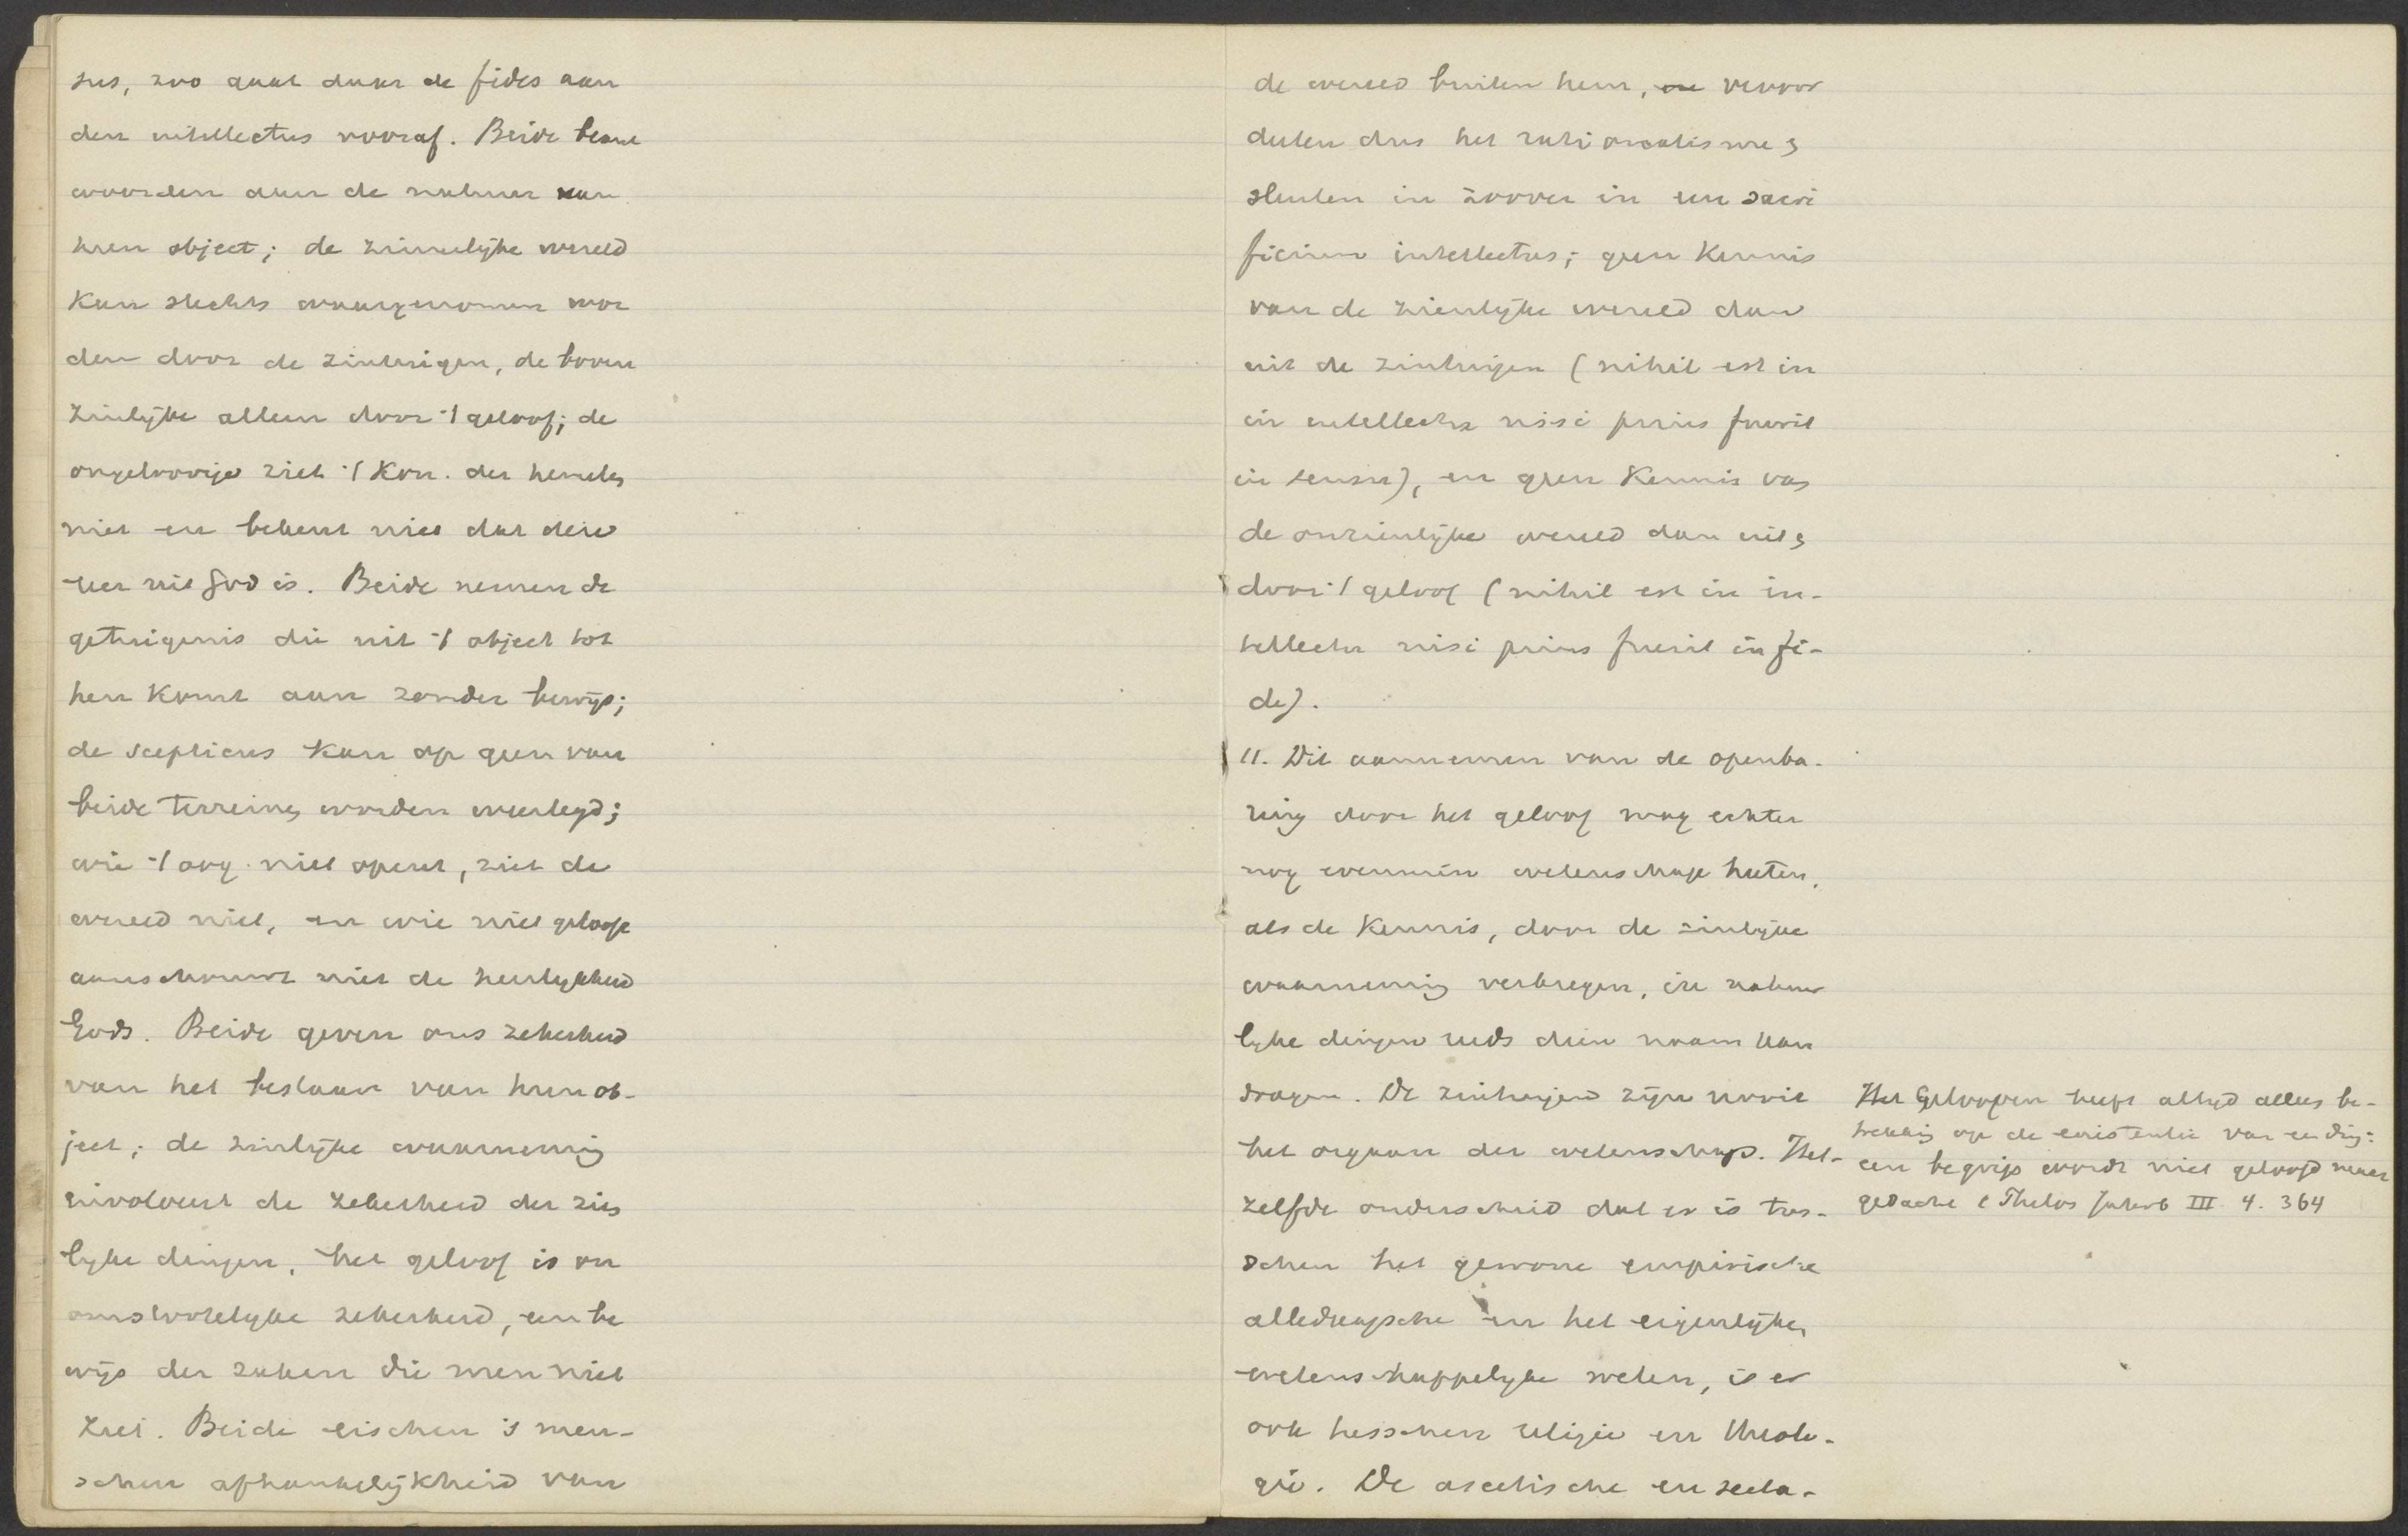 sus, zoo gaat daar de fides aan
den intellectus vooraf. Beide beant
woorden aan de natuur van
hun object; de zinnelijke wereld
kan slechts waargenomen wor
den door de zintuigen, de boven
zinlijke alleen door 't geloof; de
ongeloovige ziet 't Kon. der hemelen
niet en bekent niet dat deze
leer uit God is. Beide nemen de
getuigenis die uit 't object tot
hen komt aan zonder bewijs;
de scepticus kan op geen van
beide terreinen worden weerlegd;
wie 't oog niet opent, ziet de
wereld niet, en wie niet gelooft
aanschouwt niet de heerlijkheid
Gods. Beide geven ons zekerheid
van het bestaan van hun ob-
ject; de zinlijke waarneming
involveert de zekerheid der zin
lijke dingen, het geloof is on
omstootelijke zekerheid, een be
wijs der zaken die men niet
ziet. Beide eischen 's men-
schen afhankelijkheid van
de wereld buiten hem, veroor
deelen dus het rationalisme en
sluiten in zoover in een sacri
ficium intellectus; geen kennis
van de zienlijke wereld dan
uit de zintuigen (nihil est in
in intellectu nisi prius fuerit
in sensu), en geen kennis van
de onzienlijke wereld dan uit en
door 't geloof (nihil est in in-
tellectu nisi prius fuerit in fi-
de).
11. Dit aannemen van de openba-
ring door het geloof mag echter
nog evenmin wetenschap heeten,
als de kennis, door de zinlijke
waarneming verkregen, in natuur
lijke dingen reeds dien naam kan
dragen. De zintuigen zijn nooit
het orgaan der wetenschap. Het-
zelfde onderscheid dat er is tus-
schen het gewone empirische
alledaagsche en het eigenlijke,
wetenschappelijke weten, is er
ook tusschen religie en theolo-
gie. De ascetische en
Het Gelooven heeft altijd alleen be-
trekking op de existentie van een ding:
een begrip wordt niet geloofd maar
gedacht III 4. 364